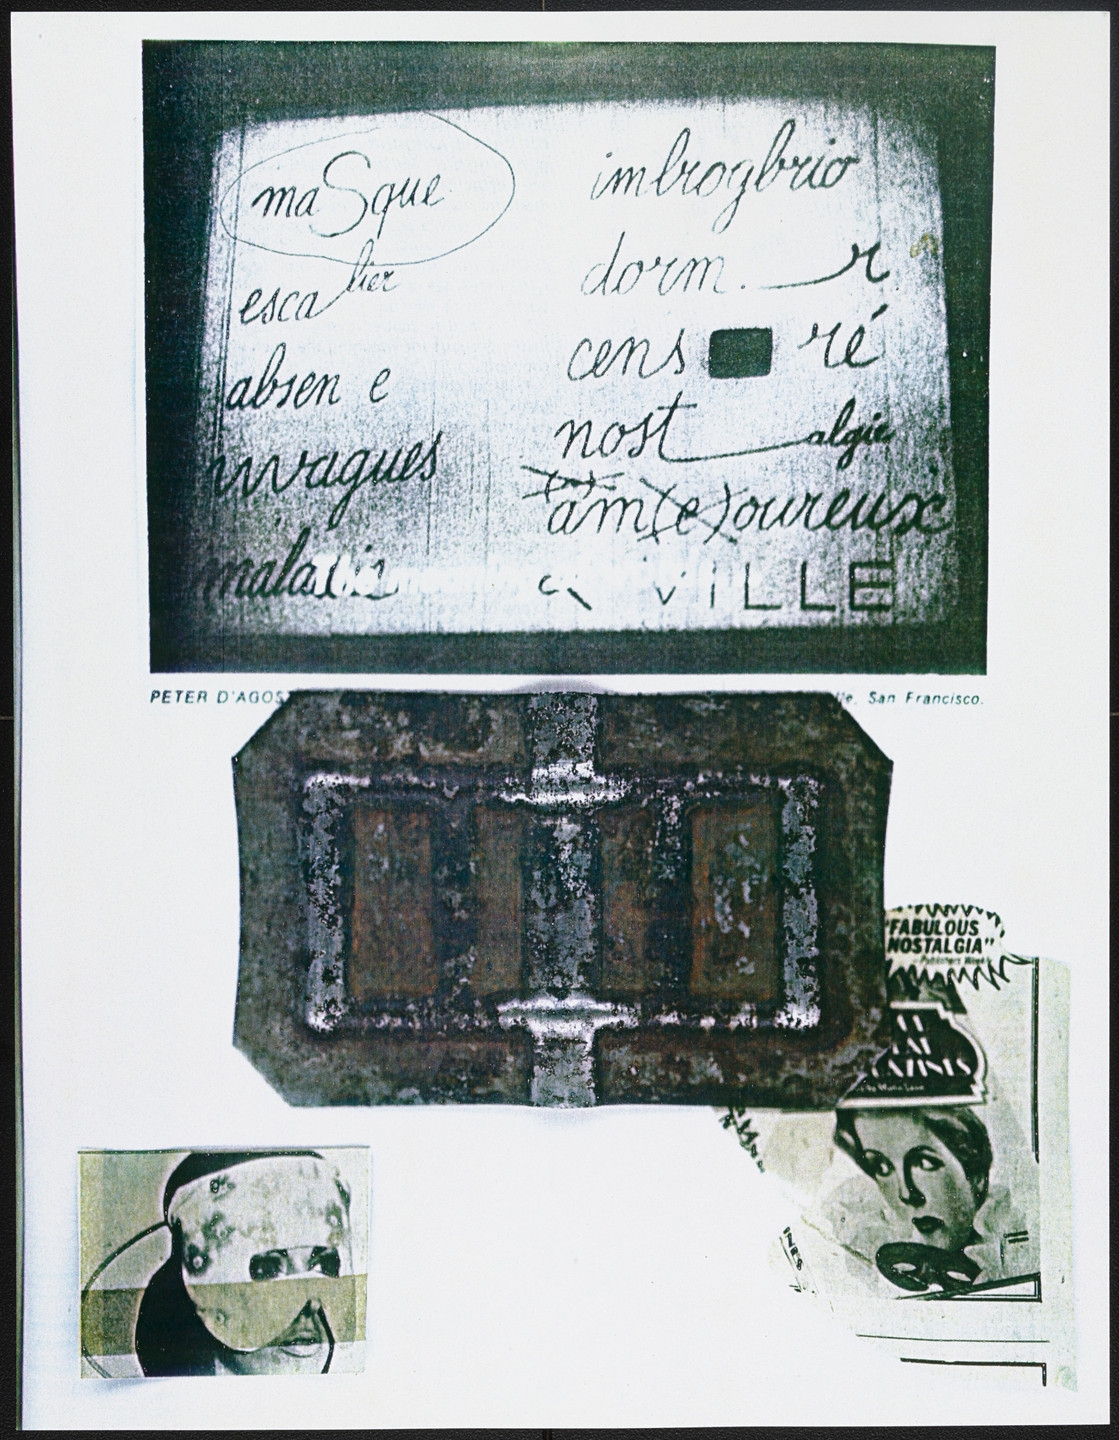 maSque
escalier
absen e
vvvagues
imbrogbrio
dorm. r
cens ré
nost algie
am(e)oureux
ViLLE
PETER D'AGOS
San Francisco.
"FABULOUS
NOSTALGIA"
—Publishers Week
INES